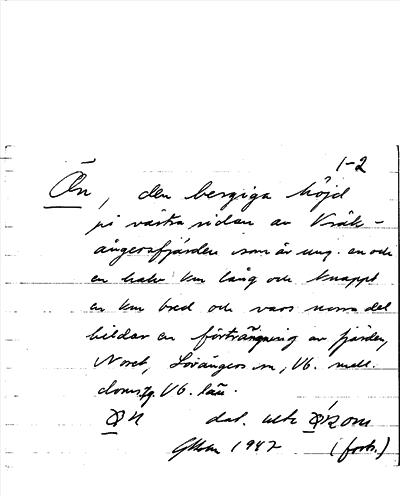 1-2
Ön, den bergiga höjd
på västra sidan av Kråk-
ångersfjärden som är ung. en och
en halv km lång och knappt
en km bred och vars norra del
bildar en förträngning av fjärden,
Noret, Lövångers sn, Vb. mell.
doms. Vb. län.
dat. utt
1942 (forts.)